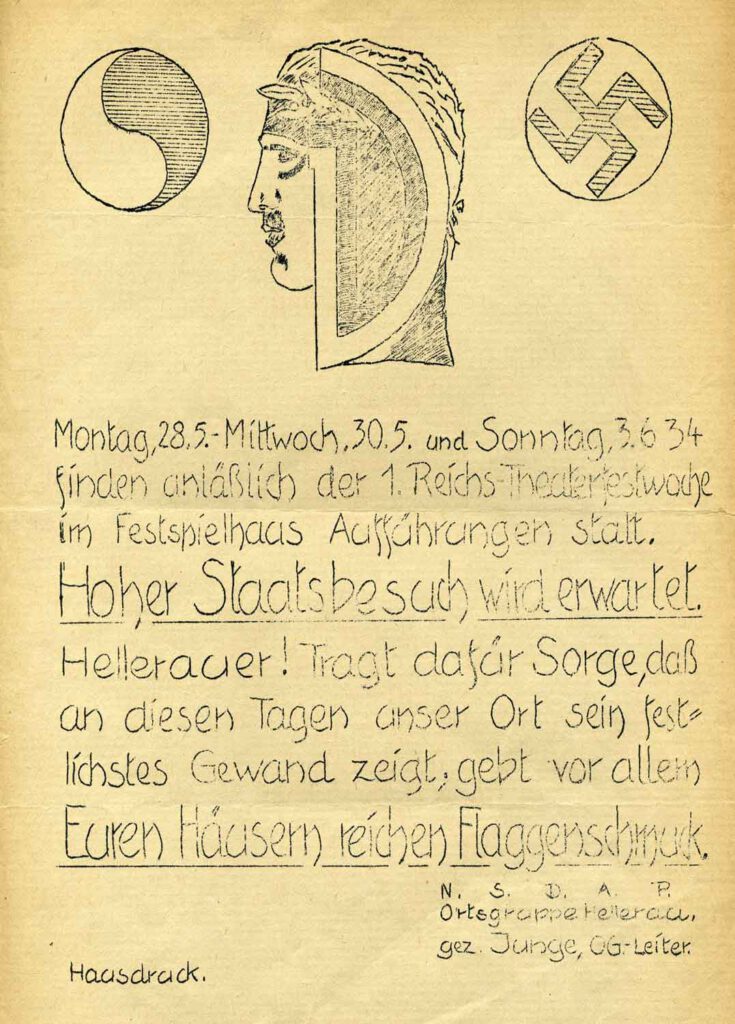 Montag, 28.5.-Mittwoch, 30.5. und Sonntag, 3.6 34
finden anläßlich der 1. Reichs-Theaterfestwoche
im Festspielhaus Aufführungen statt.
Hoher Staatsbesuch wird erwartet.
Hellerauer! Tragt dafür Sorge, daß
an diesen Tagen unser Ort sein fest=
lichstes Gewand zeigt; gebt vor allem
Euren Häusern reichen Flaggenschmuck.
N. S. D. A. P.
Ortsgruppe Hellerau.
gez. Junge, OG.-Leiter.
Hausdruck.